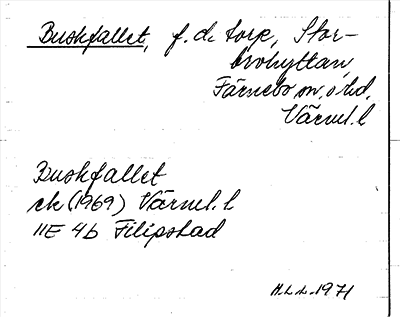 Buskfallet, f.d. torp, Stor-
brohyttan,
Färnebo sn, o hd,
Värml. l
Buskfallet
ek (1969) Värml. l
11E 4b Filipstad
H.L.L. 1971